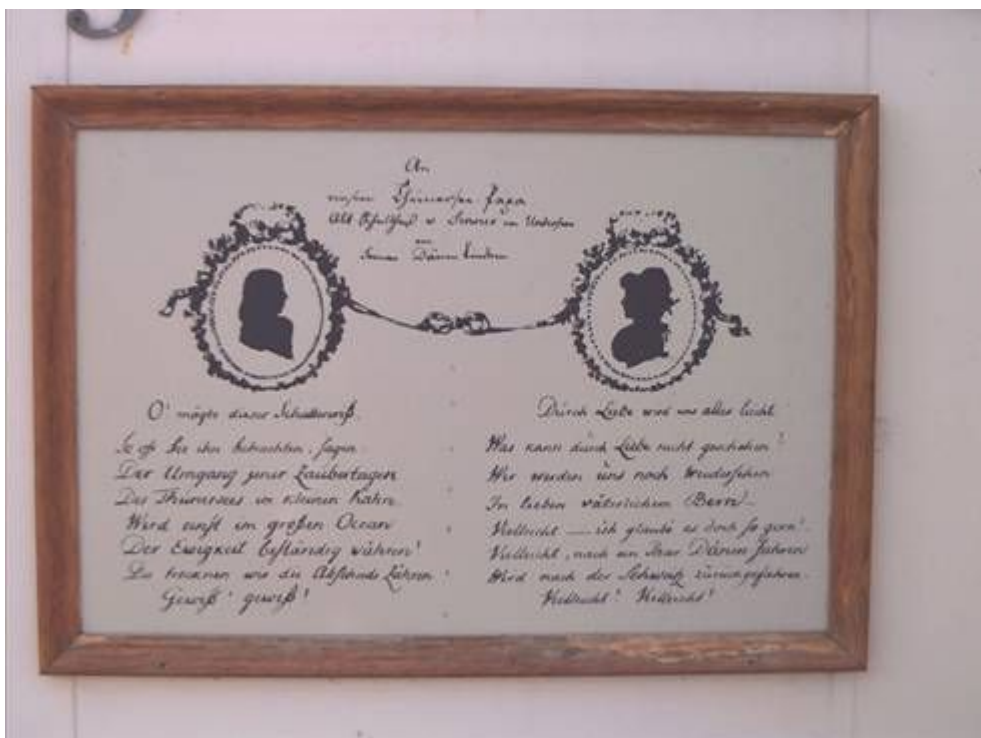 An
unsern Thunersee Papa
Alt Schultheiß v. in Unterseen
von
Seinen Dänen Kindern
O! mögte dieser Schattenriß
So oft Sie ihn betrachten, sagen
Der Umgang jener Zaubertagen
Des Thunersees im kleinen Kahn
Wird einst im großen Ocean
Der Ewigkeit beständig währen!
Da trocknen wir die Abschieds Zähren
Gewiß! gewiß!
Durch Liebe wird uns alles leicht
Was kann durch Liebe nicht geschehen!
Wir werden uns noch wiedersehen
In lieben väterlichem Bern
Vielleicht — ich glaube es doch so gern!
Vielleicht, nach ein Paar Dänen Jahren
Wird nach der Schweitz zurückgefahren
Vielleicht! Vielleicht!